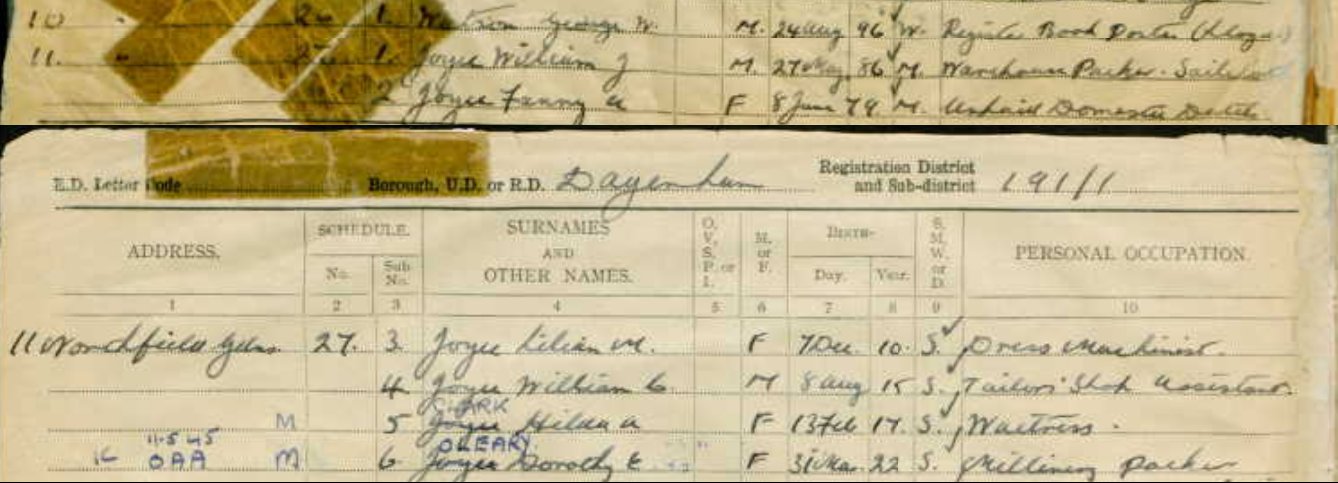 10 " 1. Watson George W. M. 24 Aug 96 W. Register Book Porter
11. " 1. Joyce William J M. 27 May 86 M. Warehouse Packer.
2 Joyce Fanny A F 8 June 79 M. Unpaid Domestic Duties
E.D. Letter Code Borough, U.D. or R.D. Dagenham Registration District and Sub-district 191/1
ADDRESS. SCHEDULE. SURNAMES AND OTHER NAMES. O, V, S, P. or I. M. or F. BIRTH- S. M. W. or D. PERSONAL OCCUPATION.
No. Sub No. Day. Year.
1 2 3 4 5 6 7 8 9 10
11 Gdns. 27. 3. Joyce Lilian M. F 7 Dec. 10. S. Dress Machinist.
4 Joyce William C. M 8 Aug 15 S. Tailors' Shop Assistant.
CLARK
M 5 Joyce Hilda A F 13 Feb 17. S. Waitress.
11.5.45 OLEARY
OAA M 6 Joyce Dorothy E F 31 Mar. 22 S. Millinery Packer